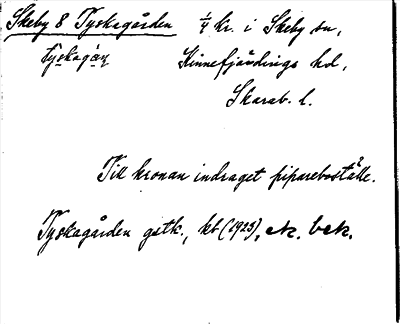 Skeby 8 Tyskagården 1/4 kr. i Skeby sn,
Kinnefjärdings hd,
Skarab. l.
Till kronan indraget pipareboställe.
Tyskagården gstk., kb (1923), ek. bek.